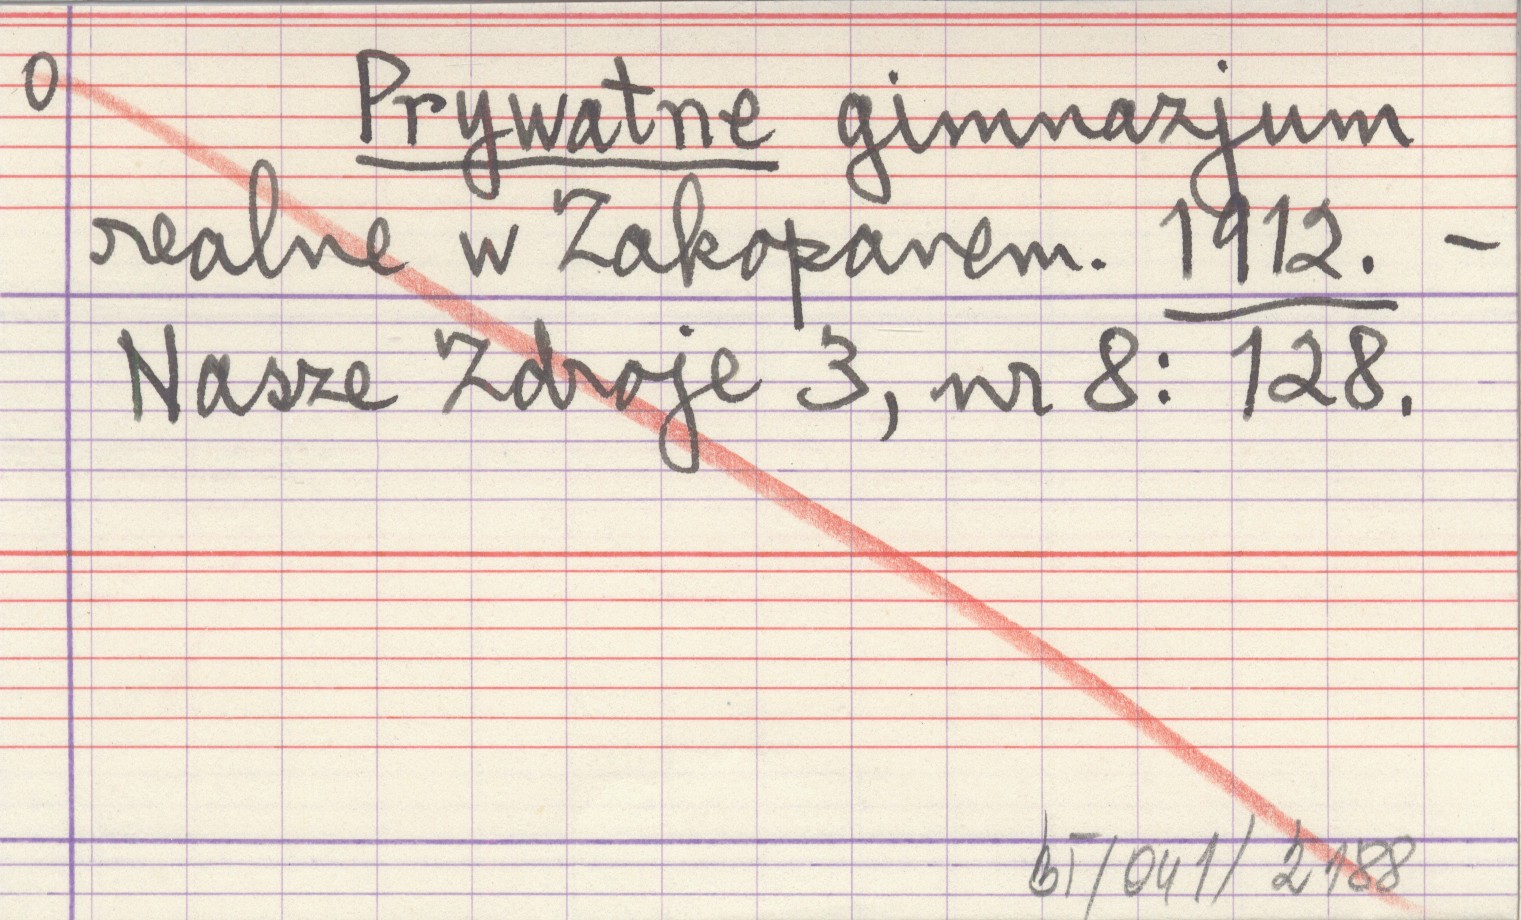 0 Prywatne gimnazjum
realne w Zakopanem. 1912. –
Nasze Zdroje 3, nr 8: 128.
BT/041/2188